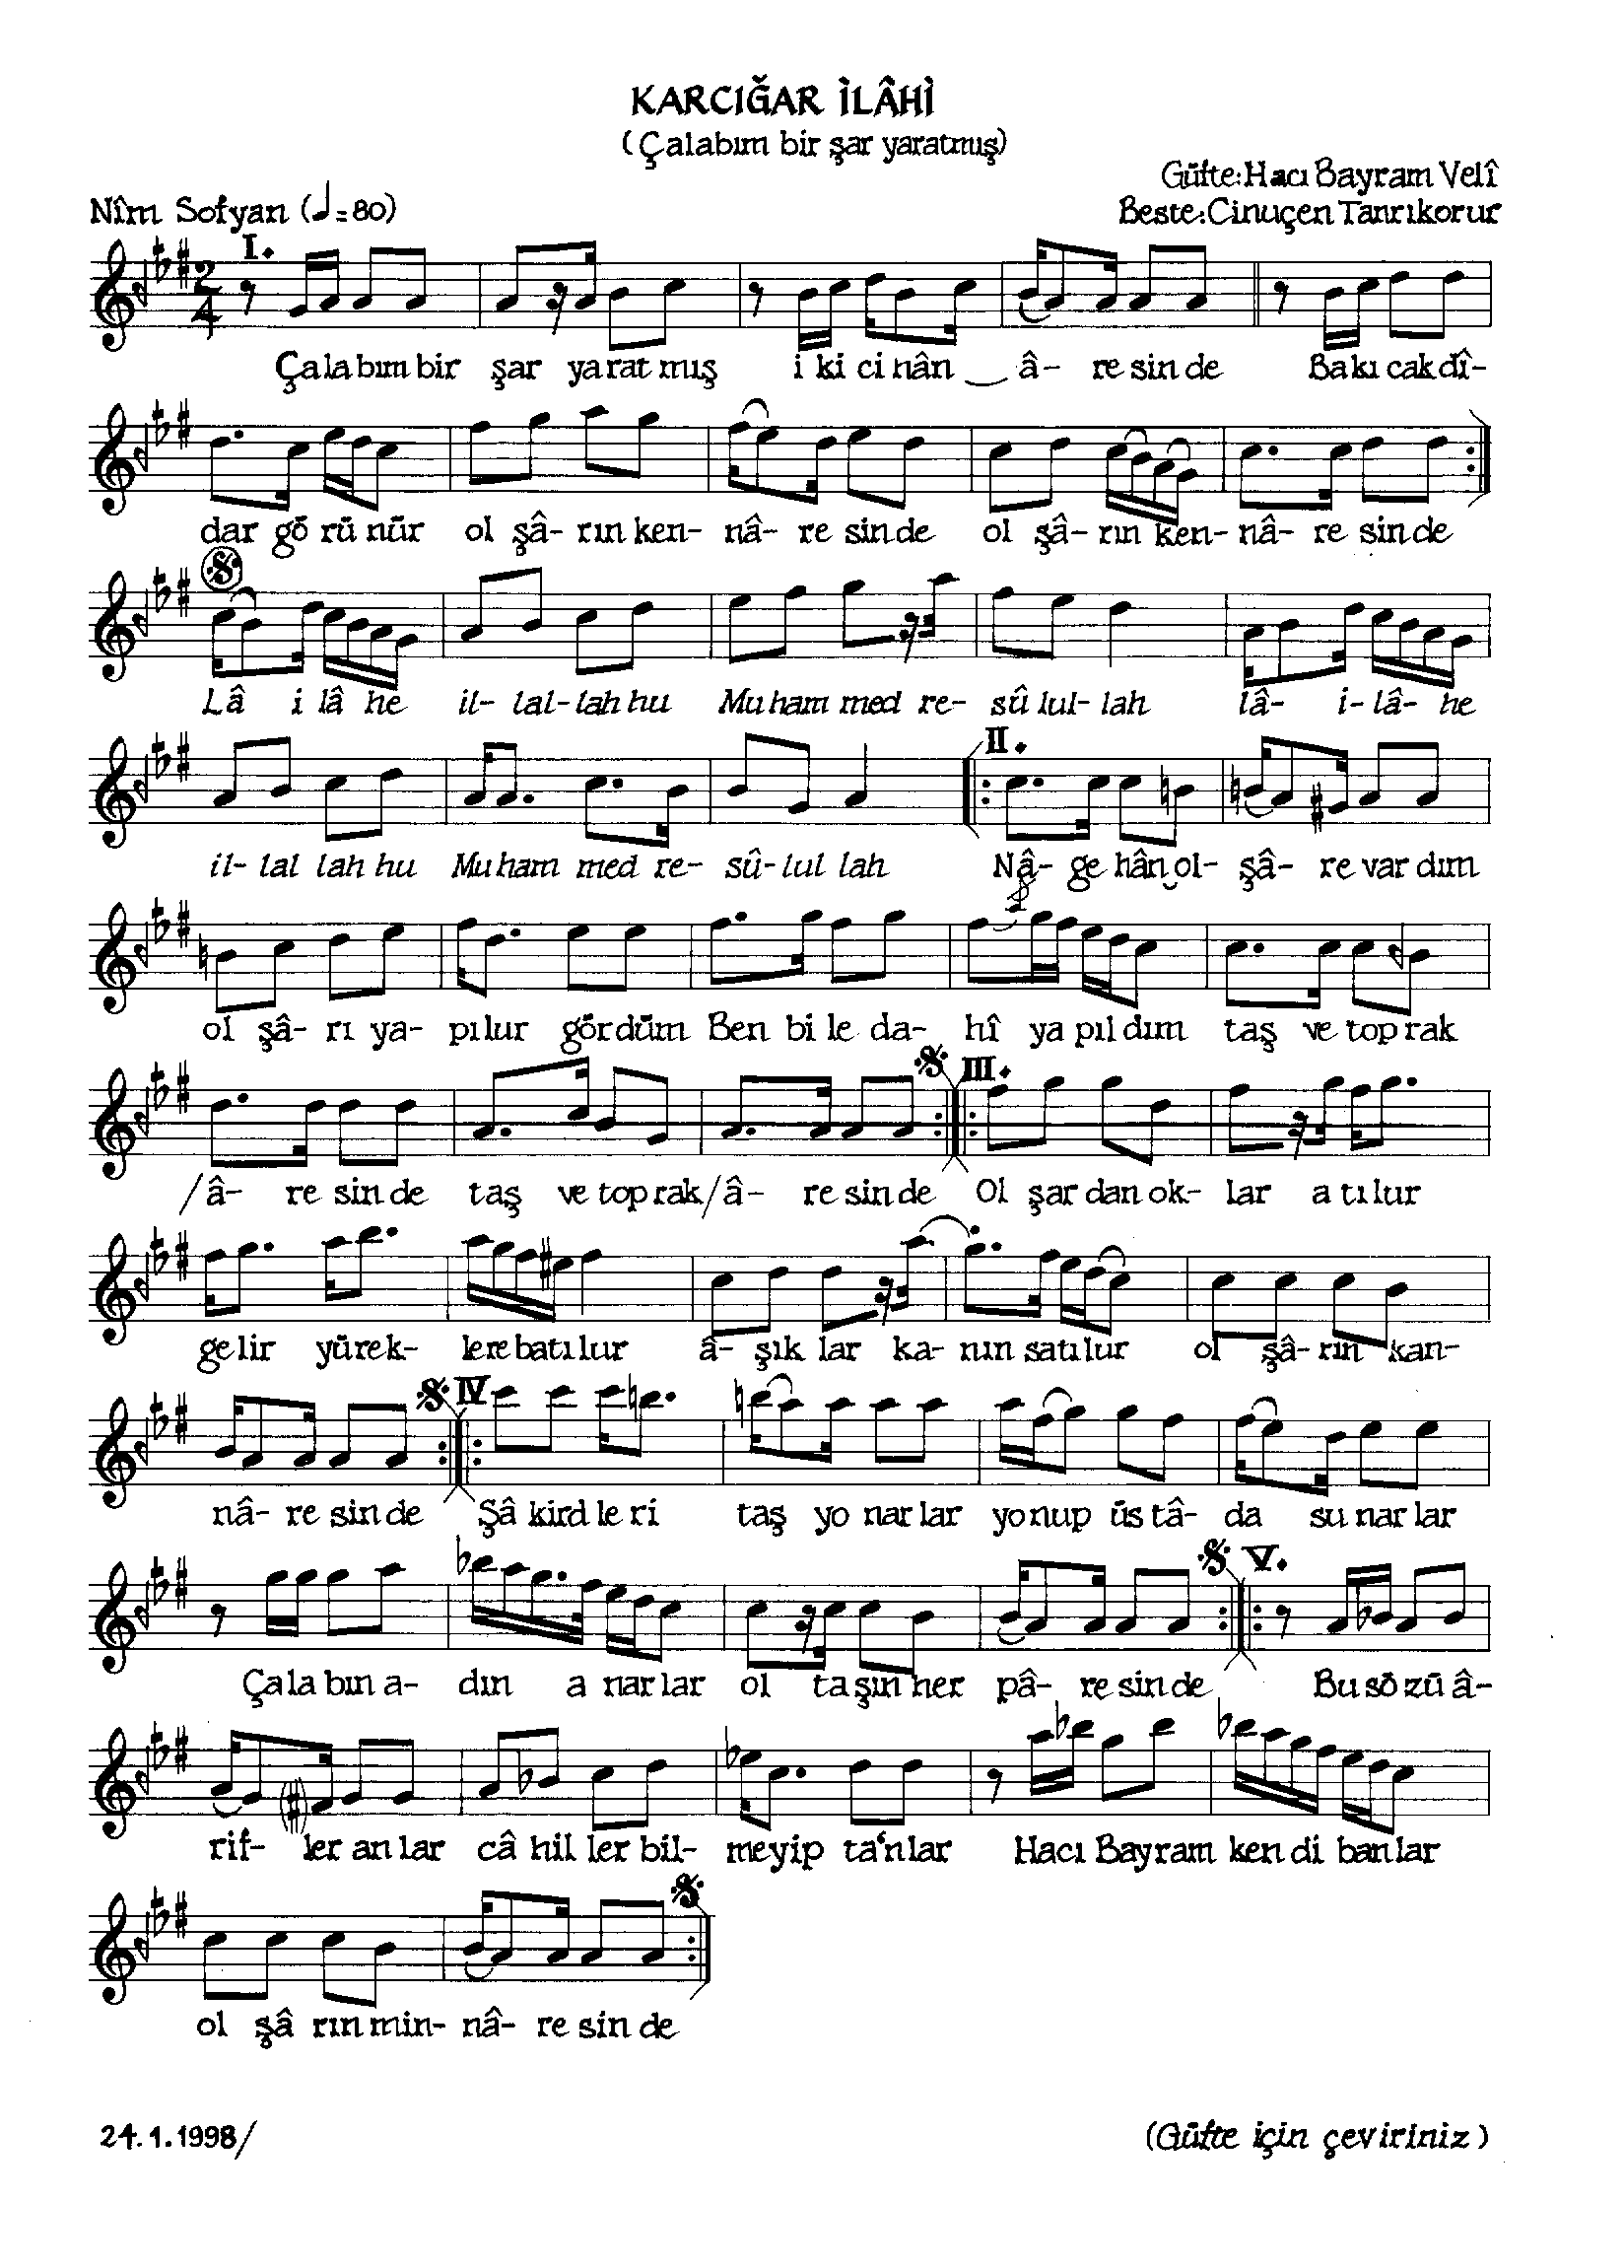 KARCIĞAR İLÂHİ
(Çalabım bir şar yaratmış)
Güfte:Hacı Bayram Velî
Nîm Sofyan (♩=80)
Beste:Cinuçen Tanrıkorur
I.
2/4
Çalabım bir şar yarat mış i ki ci nân â- re sin de Bakı cak dî-
dar gö rü nür ol şâ- rın ken- nâ- re sin de ol şâ- rın ken- nâ- re sin de
Lâ i lâ he il- lal- lah hu Mu ham med re- sû lul- lah lâ- i- lâ- he
II.
il- lal lah hu Mu ham med re- sû- lul lah Nâ- ge hân ol- şâ- re var dım
ol şâ- rı ya- pı lur gör düm Ben bi le da- hî ya pıl dım taş ve top rak
III.
/â- re sin de taş ve top rak/â- re sin de Ol şar dan ok- lar a tı lur
ge lir yü rek- lere batı lur â- şık lar ka- nın satı lur ol şâ- rın kan-
IV
nâ- re sin de Şâ kird le ri taş yo nar lar yo nup üs tâ- da su nar lar
V.
Ça la bın a- dın a nar lar ol ta şın her pâ- re sin de Bu sö zü â-
rif- ler an lar câ hil ler bil- meyip ta'n lar Hacı Bay ram ken di ban lar
ol şâ rın min- nâ- re sin de
24.1.1998/
(Güfte için çeviriniz)